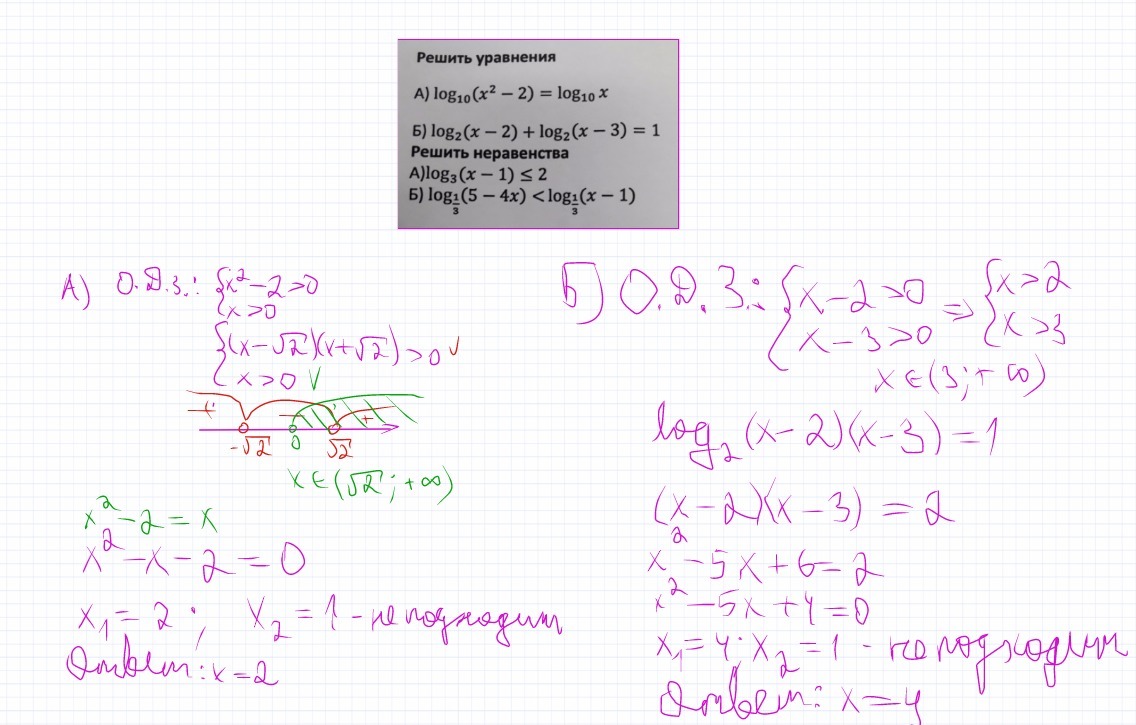 Решить уравнения
А) log₁₀(x² − 2) = log₁₀ x
Б) log₂(x − 2) + log₂(x − 3) = 1
Решить неравенства
А)log₃(x − 1) ≤ 2
Б) log_{1/3}(5 − 4x) < log_{1/3}(x − 1)
А) О.Д.З.: {x² − 2 > 0
{x > 0
{(x − √2)(x + √2) > 0 ✓
{x > 0 ✓
+ − + 
−√2 0 √2
x ∈ (√2; +∞)
x² − 2 = x
x² − x − 2 = 0
x₁ = 2; x₂ = 1 - не подходит
Ответ: x = 2
Б) О.Д.З.: {x − 2 > 0 ⇒ {x > 2
{x − 3 > 0 {x > 3
x ∈ (3; +∞)
log₂ (x − 2)(x − 3) = 1
(x − 2)(x − 3) = 2
x² − 5x + 6 = 2
x² − 5x + 4 = 0
x₁ = 4; x₂ = 1 - не подходит
Ответ: x = 4